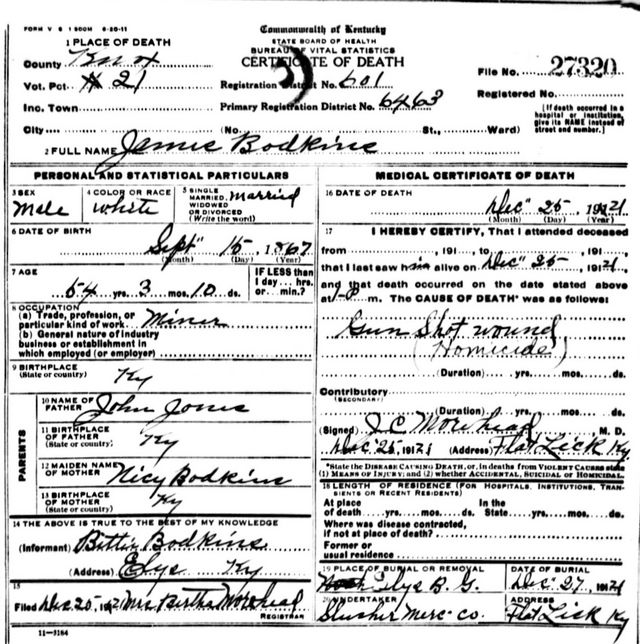 FORM V S 1 500M 6-20-11
Commonwealth of Kentucky
STATE BOARD OF HEALTH
BUREAU OF VITAL STATISTICS
CERTIFICATE OF DEATH
1 PLACE OF DEATH
County Knox
Vot. Pct # 21
Inc. Town
City
Registration District No. 601
Primary Registration District No. 6463
(No. St., Ward)
File No. 27320
Registered No.
[If death occurred in a hospital or institution, give its NAME instead of street and number.]
2 FULL NAME James Bodkins
PERSONAL AND STATISTICAL PARTICULARS
3 SEX Male
4 COLOR OR RACE White
5 SINGLE MARRIED, WIDOWED OR DIVORCED (Write the word) Married
6 DATE OF BIRTH
Sept 15, 1867
(Month) (Day) (Year)
7 AGE
54 yrs. 3 mos. 10 ds.
IF LESS than 1 day... hrs. or... min.?
8 OCCUPATION
(a) Trade, profession, or particular kind of work Miner
(b) General nature of industry business or establishment in which employed (or employer)
9 BIRTHPLACE (State or country) Ky
PARENTS
10 NAME OF FATHER John Jones
11 BIRTHPLACE OF FATHER (State or country) Ky
12 MAIDEN NAME OF MOTHER Nicy Bodkins
13 BIRTHPLACE OF MOTHER (State or country) Ky
14 THE ABOVE IS TRUE TO THE BEST OF MY KNOWLEDGE
(Informant) Bittie Bodkins
(Address) Elys Ky
15
Filed Dec 25 1921 Mrs Bertha Morehead
REGISTRAR
11-3184
MEDICAL CERTIFICATE OF DEATH
16 DATE OF DEATH
Dec 25, 1921
(Month) (Day) (Year)
17 I HEREBY CERTIFY, That I attended deceased
from , 191 , to , 191 ,
that I last saw him alive on Dec 25, 1921,
and that death occurred on the date stated above
at m. The CAUSE OF DEATH* was as follows:
Gun Shot wound
(Homicide)
(Duration) yrs. mos. ds.
Contributory
(SECONDARY)
(Duration) yrs. mos. ds.
(Signed) J. C. Morehead, M. D.
Dec 25, 1921 (Address) Flat Lick Ky
*State the DISEASE CAUSING DEATH, or, in deaths from VIOLENT CAUSES state (1) MEANS OF INJURY; and (2) whether ACCIDENTAL, SUICIDAL or HOMICIDAL.
18 LENGTH OF RESIDENCE (FOR HOSPITALS, INSTITUTIONS, TRANSIENTS OR RECENT RESIDENTS)
At place of death yrs. mos. ds. In the State yrs. mos. ds.
Where was disease contracted, if not at place of death?
Former or usual residence
19 PLACE OF BURIAL OR REMOVAL
Elys B. G.
DATE OF BURIAL
Dec 27, 1921
20 UNDERTAKER
Slusher Merc Co.
ADDRESS
Flat Lick Ky